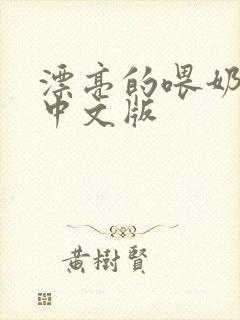 漂亮的喂奶
中文版
黄樹賢